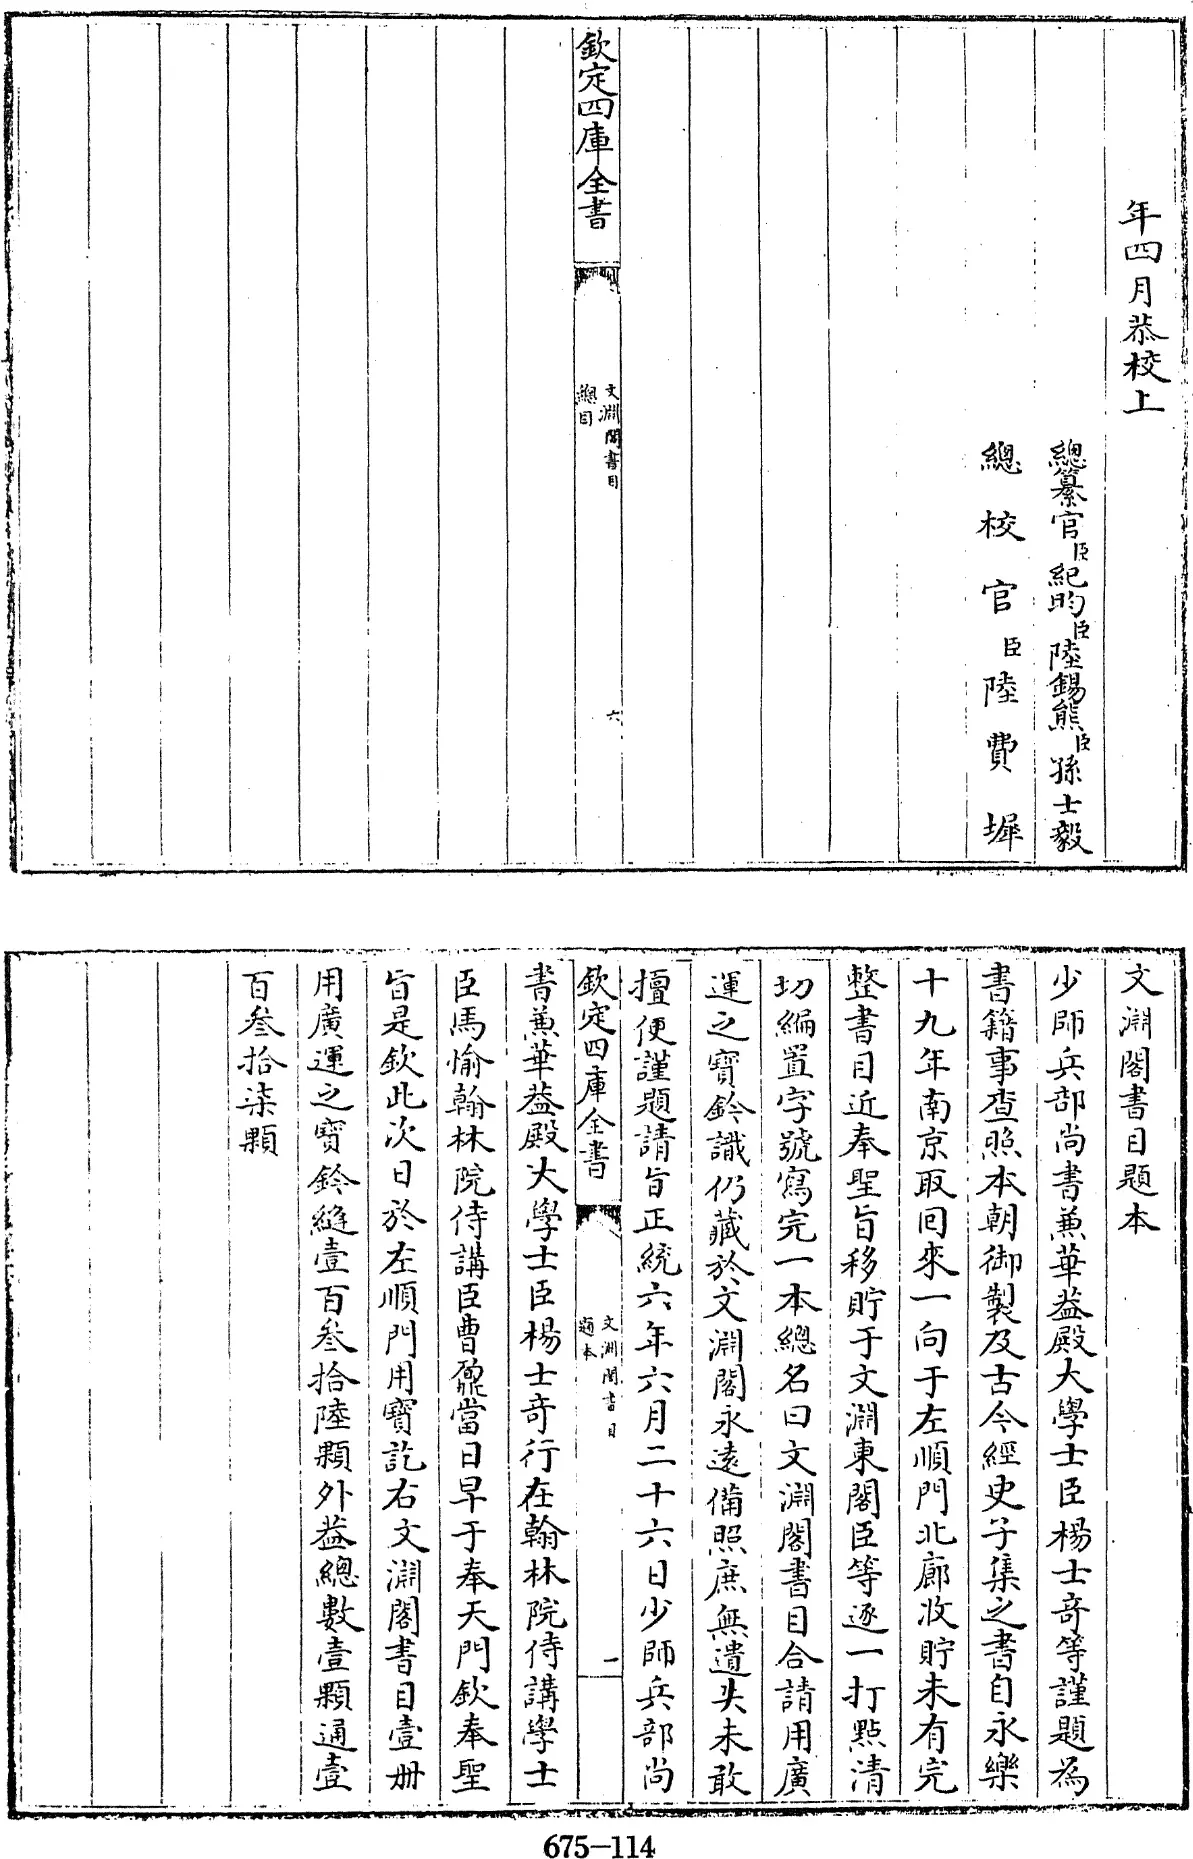 年四月恭校上
總纂官臣紀昀臣陸錫熊臣孫士毅
總校官臣陸費墀
欽定四庫全書
文淵閣書目
總目
六
文淵閣書目題本
少師兵部尚書兼華葢殿大學士臣楊士竒等謹題為
書籍事查照本朝御製及古今經史子集之書自永樂
十九年南京取回來一向于左順門北廊收貯未有完
整書目近奉聖旨移貯于文淵東閣臣等逐一打點清
切編置字號寫完一本總名曰文淵閣書目合請用廣
運之寶鈐識仍藏於文淵閣永遠備照庶無遺失未敢
擅便謹題請旨正統六年六月二十六日少師兵部尚
欽定四庫全書
文淵閣書目
題本
一
書兼華葢殿大學士臣楊士竒行在翰林院侍講學士
臣馬愉翰林院侍講臣曹鼐當日早于奉天門欽奉聖
旨是欽此次日於左順門用寶訖右文淵閣書目壹冊
用廣運之寶鈐縫壹百叁拾陸顆外葢總數壹顆通壹
百叁拾柒顆
675-114